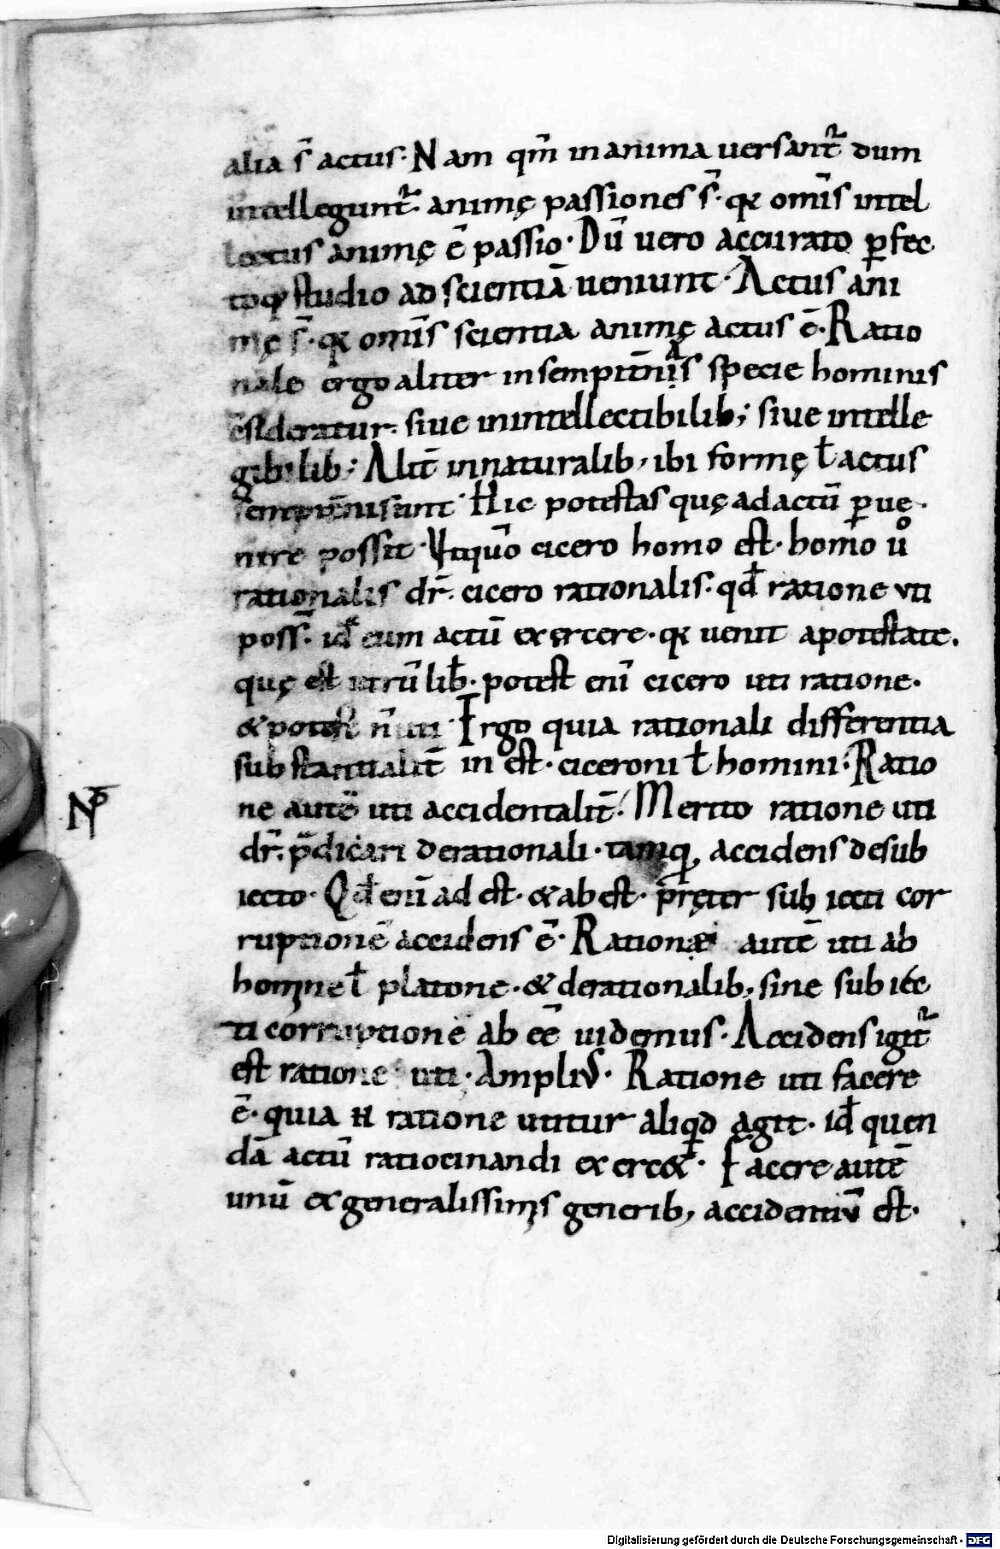 alia s̄ actus· Nam qm̄ in anima uersant̄ dum
intellegunt̄· animę passiones s̄· qr omīs intel
lectus animę ē passio· Dū uero accurato ꝑfec
toq; studio ad scientiā ueniunt· Actus ani
mę s̄· qr omīs scientia animę actus ē· Ratio
nale ergo aliter in sempitn̄is specie hominis
ꝯsideratur· siue in intellectibilib; siue intelle
gibilib; Alit̄ in naturalib; ibi formę ł actus
sempitn̄i sunt· Hic potestas quę ad actū ꝑue·
nire possit· Vtiquō cicero homo est· homo uͦ
rationalis dr̄· cicero rationalis· qđ ratione uti
poss̄· iđ cum actū exercere· qr uenit a potestate·
quę est utrūlib̵· potest enī cicero uti ratione·
& potest n̄ uti· Ergo quia rationali differentia
substantialit̄ in est· ciceroni ł homini· Ratio
ne autē uti accidentalit̄· Merito ratione uti
dr̄· p̄dicari de rationali· tamq̄ accidens de sub
iecto· Qđ enī ad est· & ab est· pręter sub iecti cor
ruptionē accidens ē· Ratione autē uti ab
homine ł platone· & de rationalib; sine sub iec
ti corruptione ab eē uidemus· Accidens igit̄
est ratione uti· Ampliꝰ· Ratione uti facere
ē· quia n ratione utitur aliqd agit· iđ quen
dā actū ratiocinandi exerc&· Facere autē
unū ex generalissimis generib; accidentiū est·
Digitalisierung gefördert durch die Deutsche Forschungsgemeinschaft - DFG